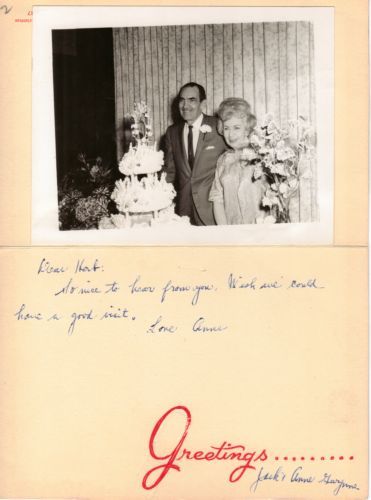 Dear Herb:
So nice to hear from you. Wish we could
have a good visit.
Love Anne
Greetings.........
Jack & Anne Gwynne